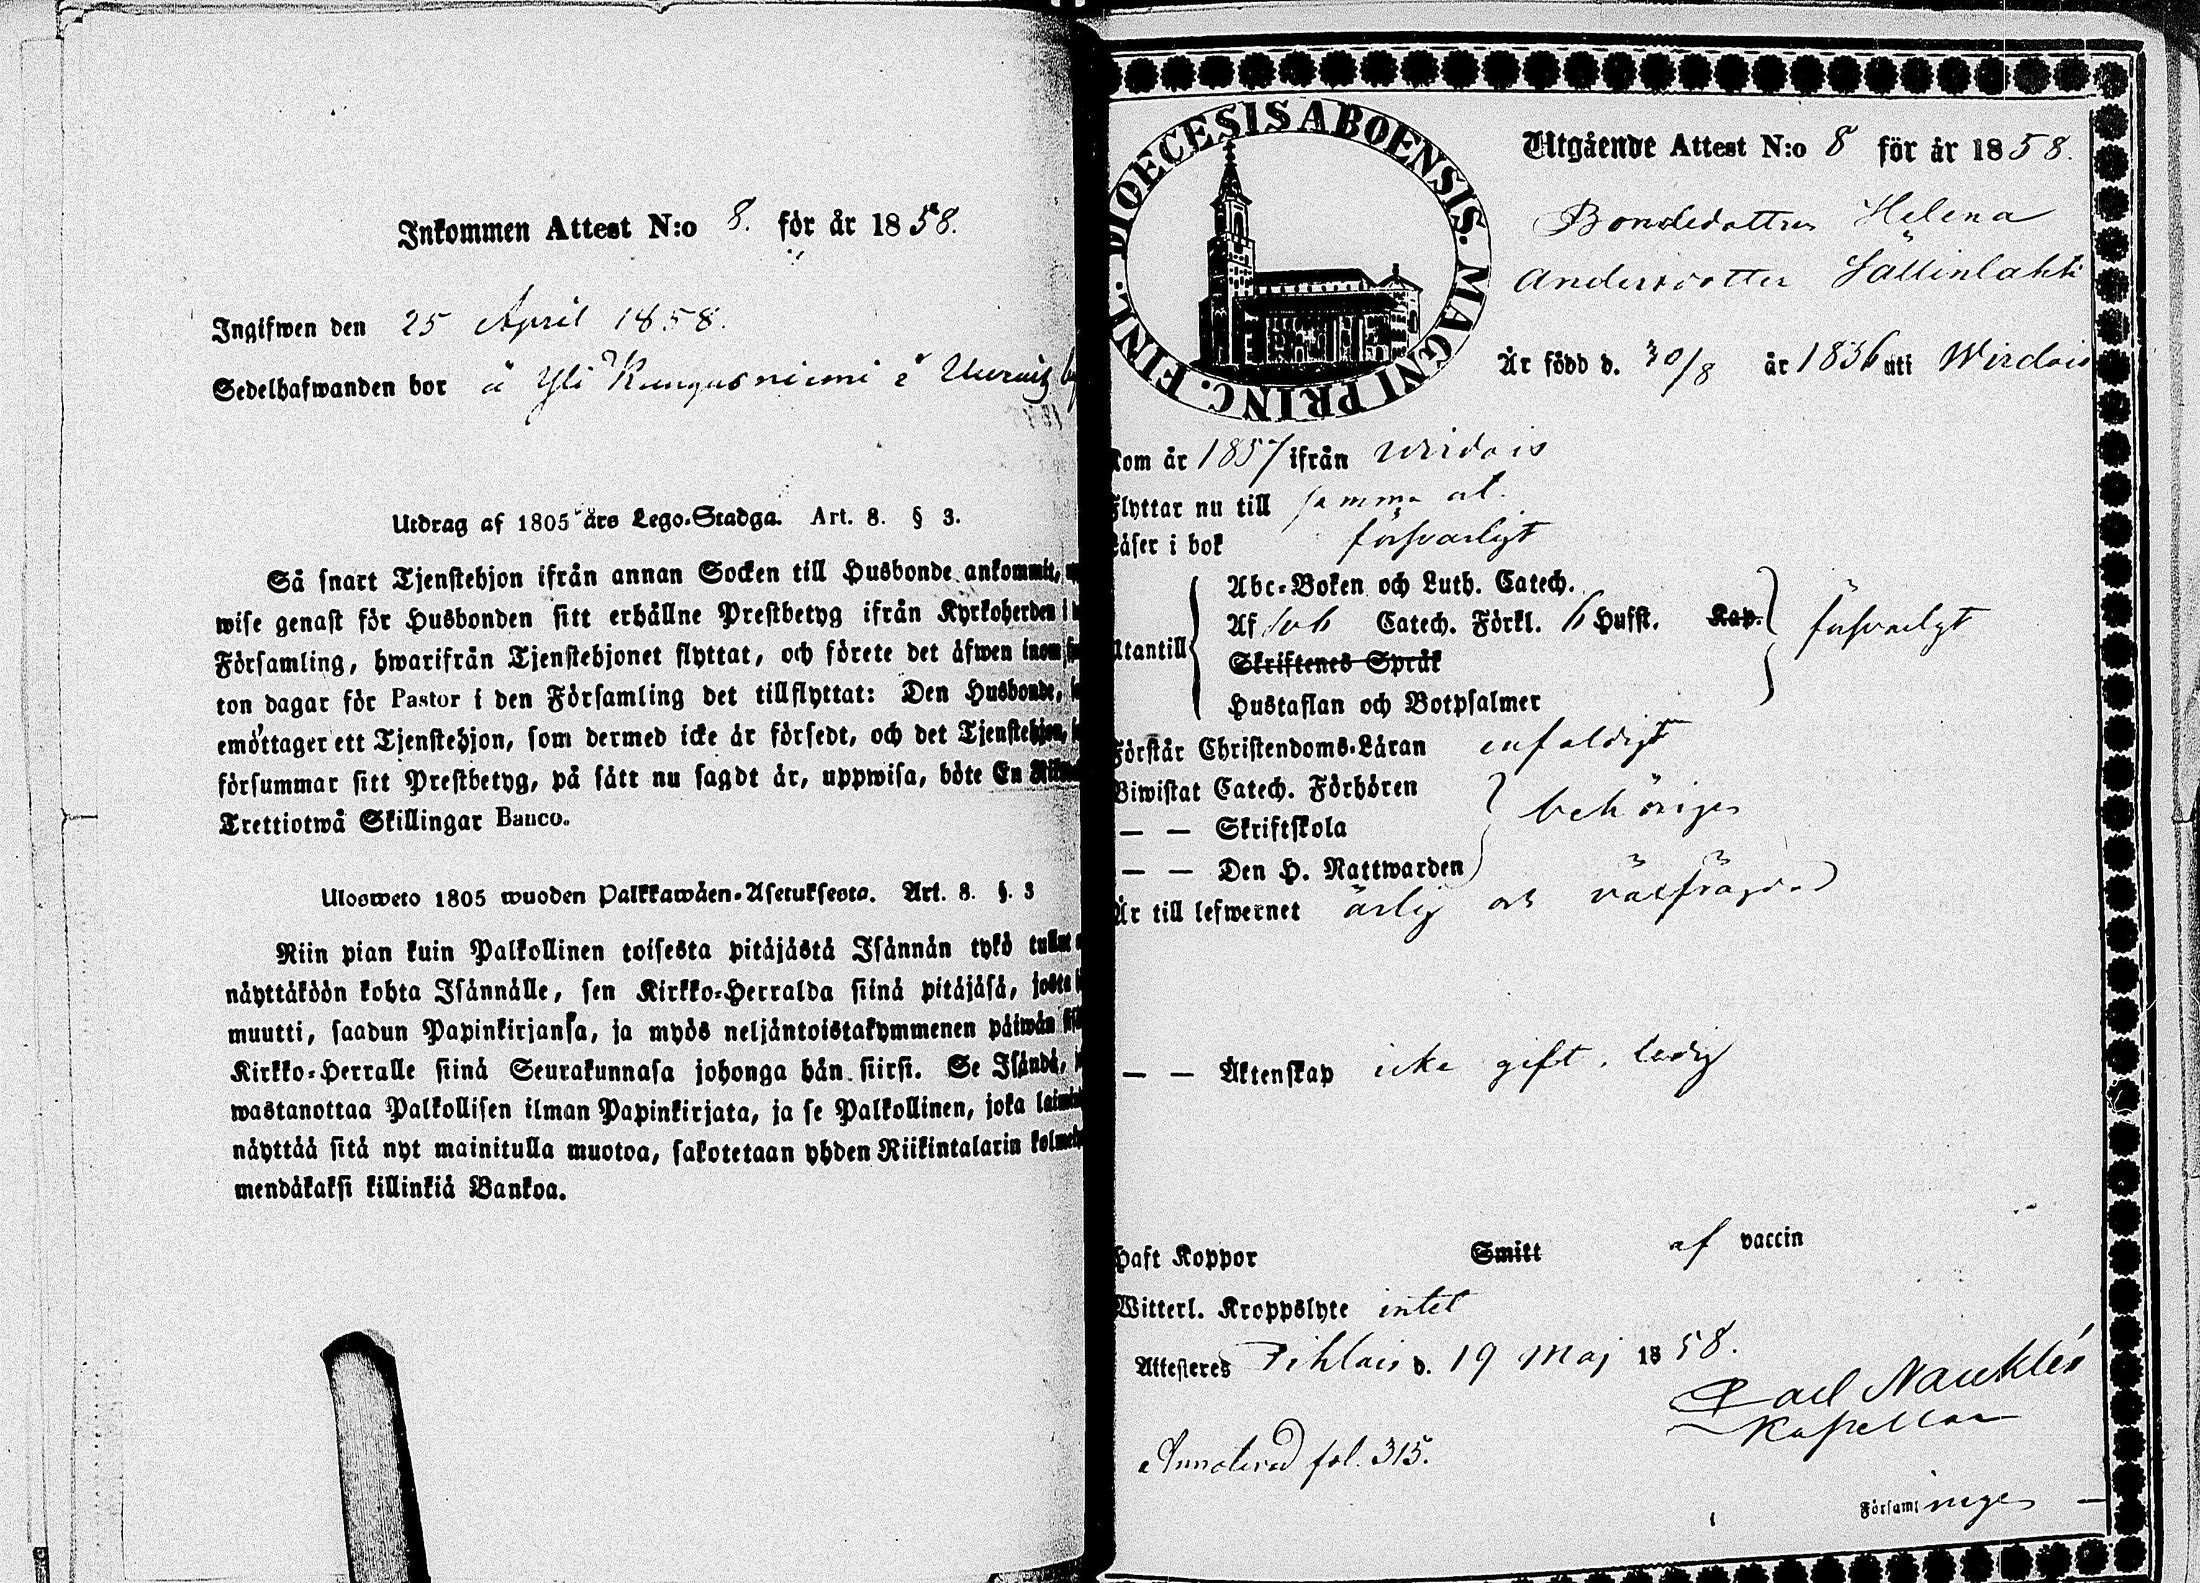 Inkommen Attest N:o 8. för år 1858.
Ingifwen den 25 April 1858.
Sedelhafwanden bor å Yli Kangasniemi i
Utdrag af 1805 års Lego-Stadga. Art. 8. § 3.
Så snart Tjenstehjon ifrån annan Socken till Husbonde ankommit,
wise genast för Husbonden sitt erhållne Prestbetyg ifrån Kyrkoherden i
Församling, hwarifrån Tjenstehjonet flyttat, och förete det äfwen inom
ton dagar för Pastor i den Församling det tillflyttat: Den Husbonde,
emottager ett Tjenstehjon, som dermed icke är försedt, och det Tjenstehjon,
försummar sitt Prestbetyg, på sätt nu sagdt är, uppwisa, böte En
Trettiotwå Skillingar Banco.
Ulosweto 1805 wuoden Palkkawäen-Asetuksesta. Art. 8. §. 3
Niin pian kuin Palkollinen toisesta pitäjästä Isännän tykö tullut
näyttäköön kohta Isännälle, sen Kirkko-Herralda siinä pitäjäsä, josta
muutti, saadun Papinkirjansa, ja myös neljäntoistakymmenen päiwän
Kirkko-Herralle siinä Seurakunnasa johonga hän siirsi. Se Isändä,
wastanottaa Palkollisen ilman Papinkirjata, ja se Palkollinen, joka
näyttää sitä nyt mainitulla muotoa, sakotetaan yhden Riikintalarin
mendäkaksi killinkiä Bankoa.
DIOECESIS ABOENSIS. MAGNI PRINC. FINL.
Utgående Attest N:o 8 för år 1858.
Bondedottren Helena
Andersdotter Sällinlahti
Är född d. 30/8 år 1836 uti Wirdois
Kom år 1857 ifrån Wirdois
Flyttar nu till samma ort.
Läser i bok försvarligt
Abc-Boken och Luth. Catech.
Af Catech. Förkl. 6 Hufst. Kap.
Utantill försvarligt
Skriftenes Språk
Hustaflan och Botpsalmer
Förstår Christendoms-Läran enfaldigt
Biwistat Catech. Förhören
— — Skriftskola behörigen
— — Den H. Nattwarden
Är till lefwernet ärlig och välfräjdad
— — Äktenskap icke gift, ledig
Haft Koppor Smitt af vaccin
Witterl. Kroppslyte intet
Attesteras Pihlais d. 19 Maj 1858.
Carl Nauklér
Kapellan
Annoterad fol. 315.